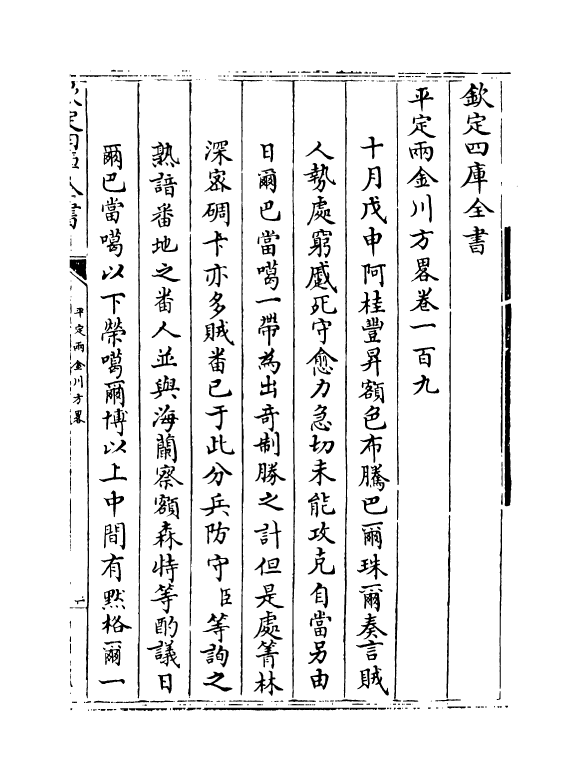 欽定四庫全書
平定兩金川方畧卷一百九
十月戊申阿桂豐昇額色布騰巴爾珠爾奏言賊
人勢處窮蹙死守愈力急切未能攻克自當另由
日爾巴當噶一帶為出奇制勝之計但是處箐林
深密碉卡亦多賊畨已于此分兵防守臣等詢之
熟諳畨地之畨人並與海蘭察額森特等酌議日
爾巴當噶以下榮噶爾博以上中間有黙格爾一
欽定四庫全書
平定兩金川方畧
一